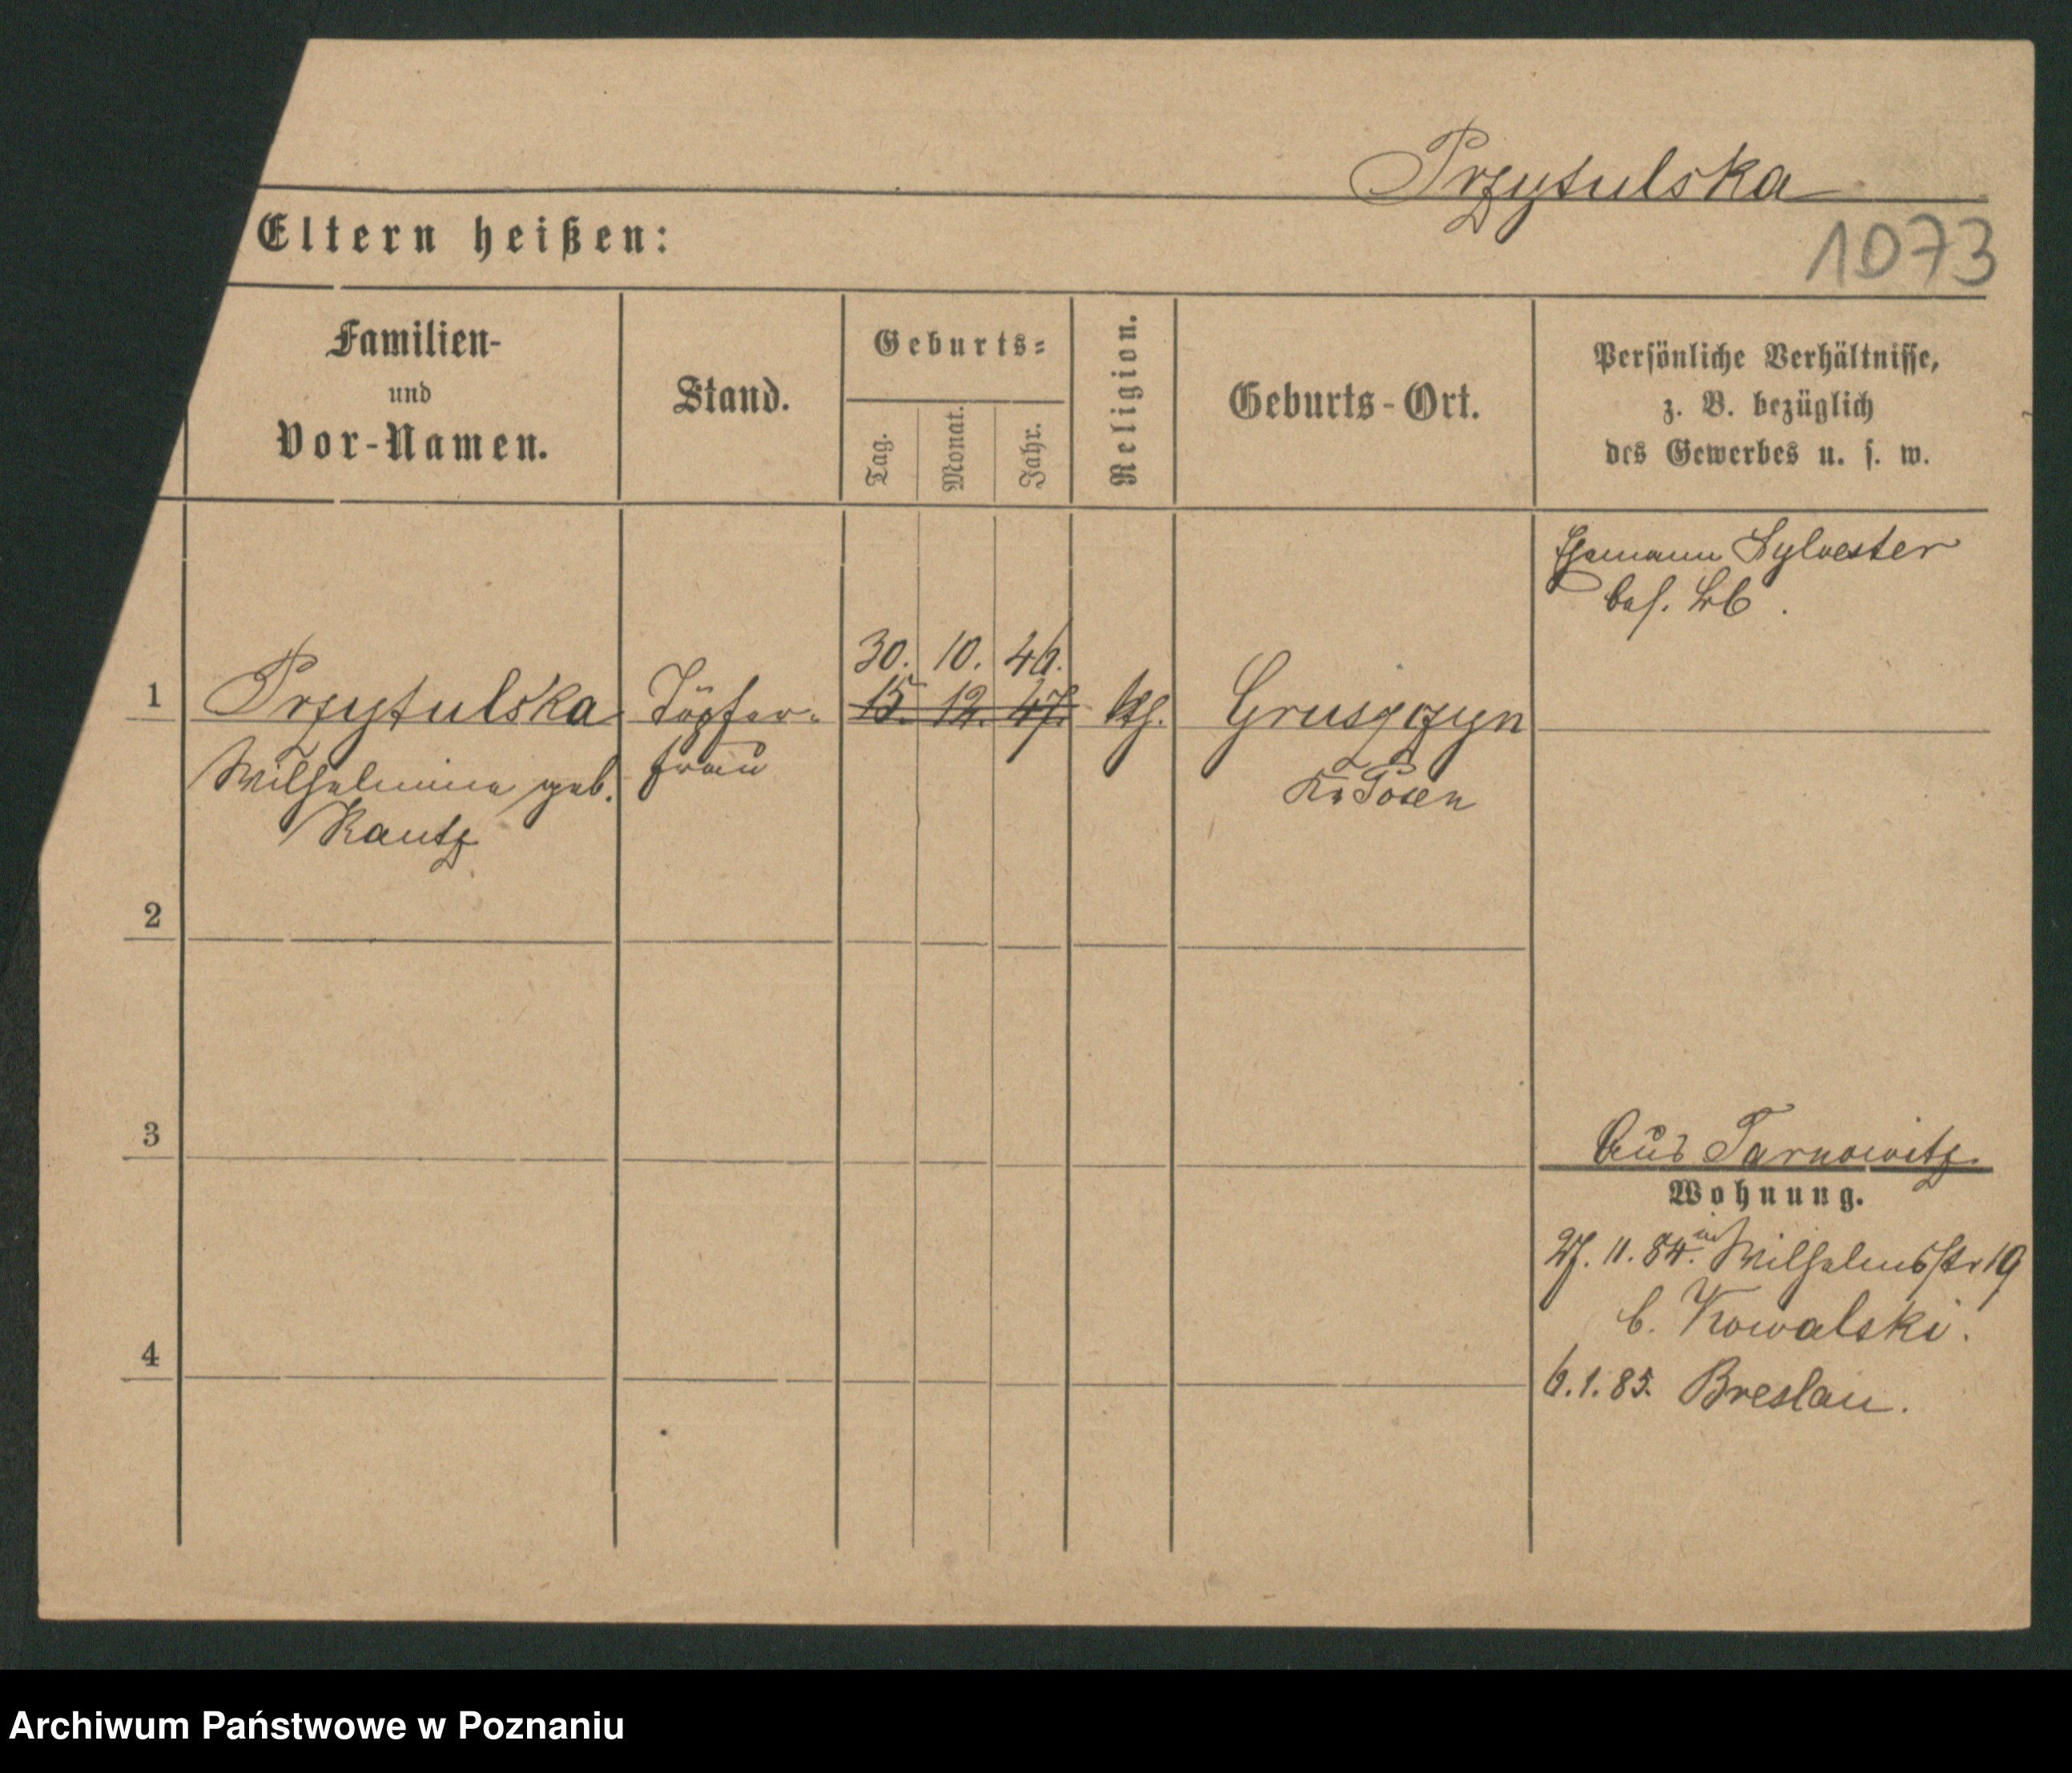 Przytulska
1073
Eltern heißen:
Familien-
und
Vor-Namen.
Stand.
Geburts-
Tag.
Monat.
Jahr.
Religion.
Geburts-Ort.
Persönliche Verhältnisse,
z. B. bezüglich
des Gewerbes u. s. w.
Ehemann Sylvester
bes.
30. 10. 46.
1 Przytulska Töpfer- 15. 12. 47. kth. Gruszczyn
Wilhelmine geb. frau Kr. Posen
Kautz
2
3
Aus Tarnowitz.
Wohnung.
27. 11. 84. Wilhelmsstr 19
b. Kowalski.
4
6. 1. 85. Breslau.
Archiwum Państwowe w Poznaniu